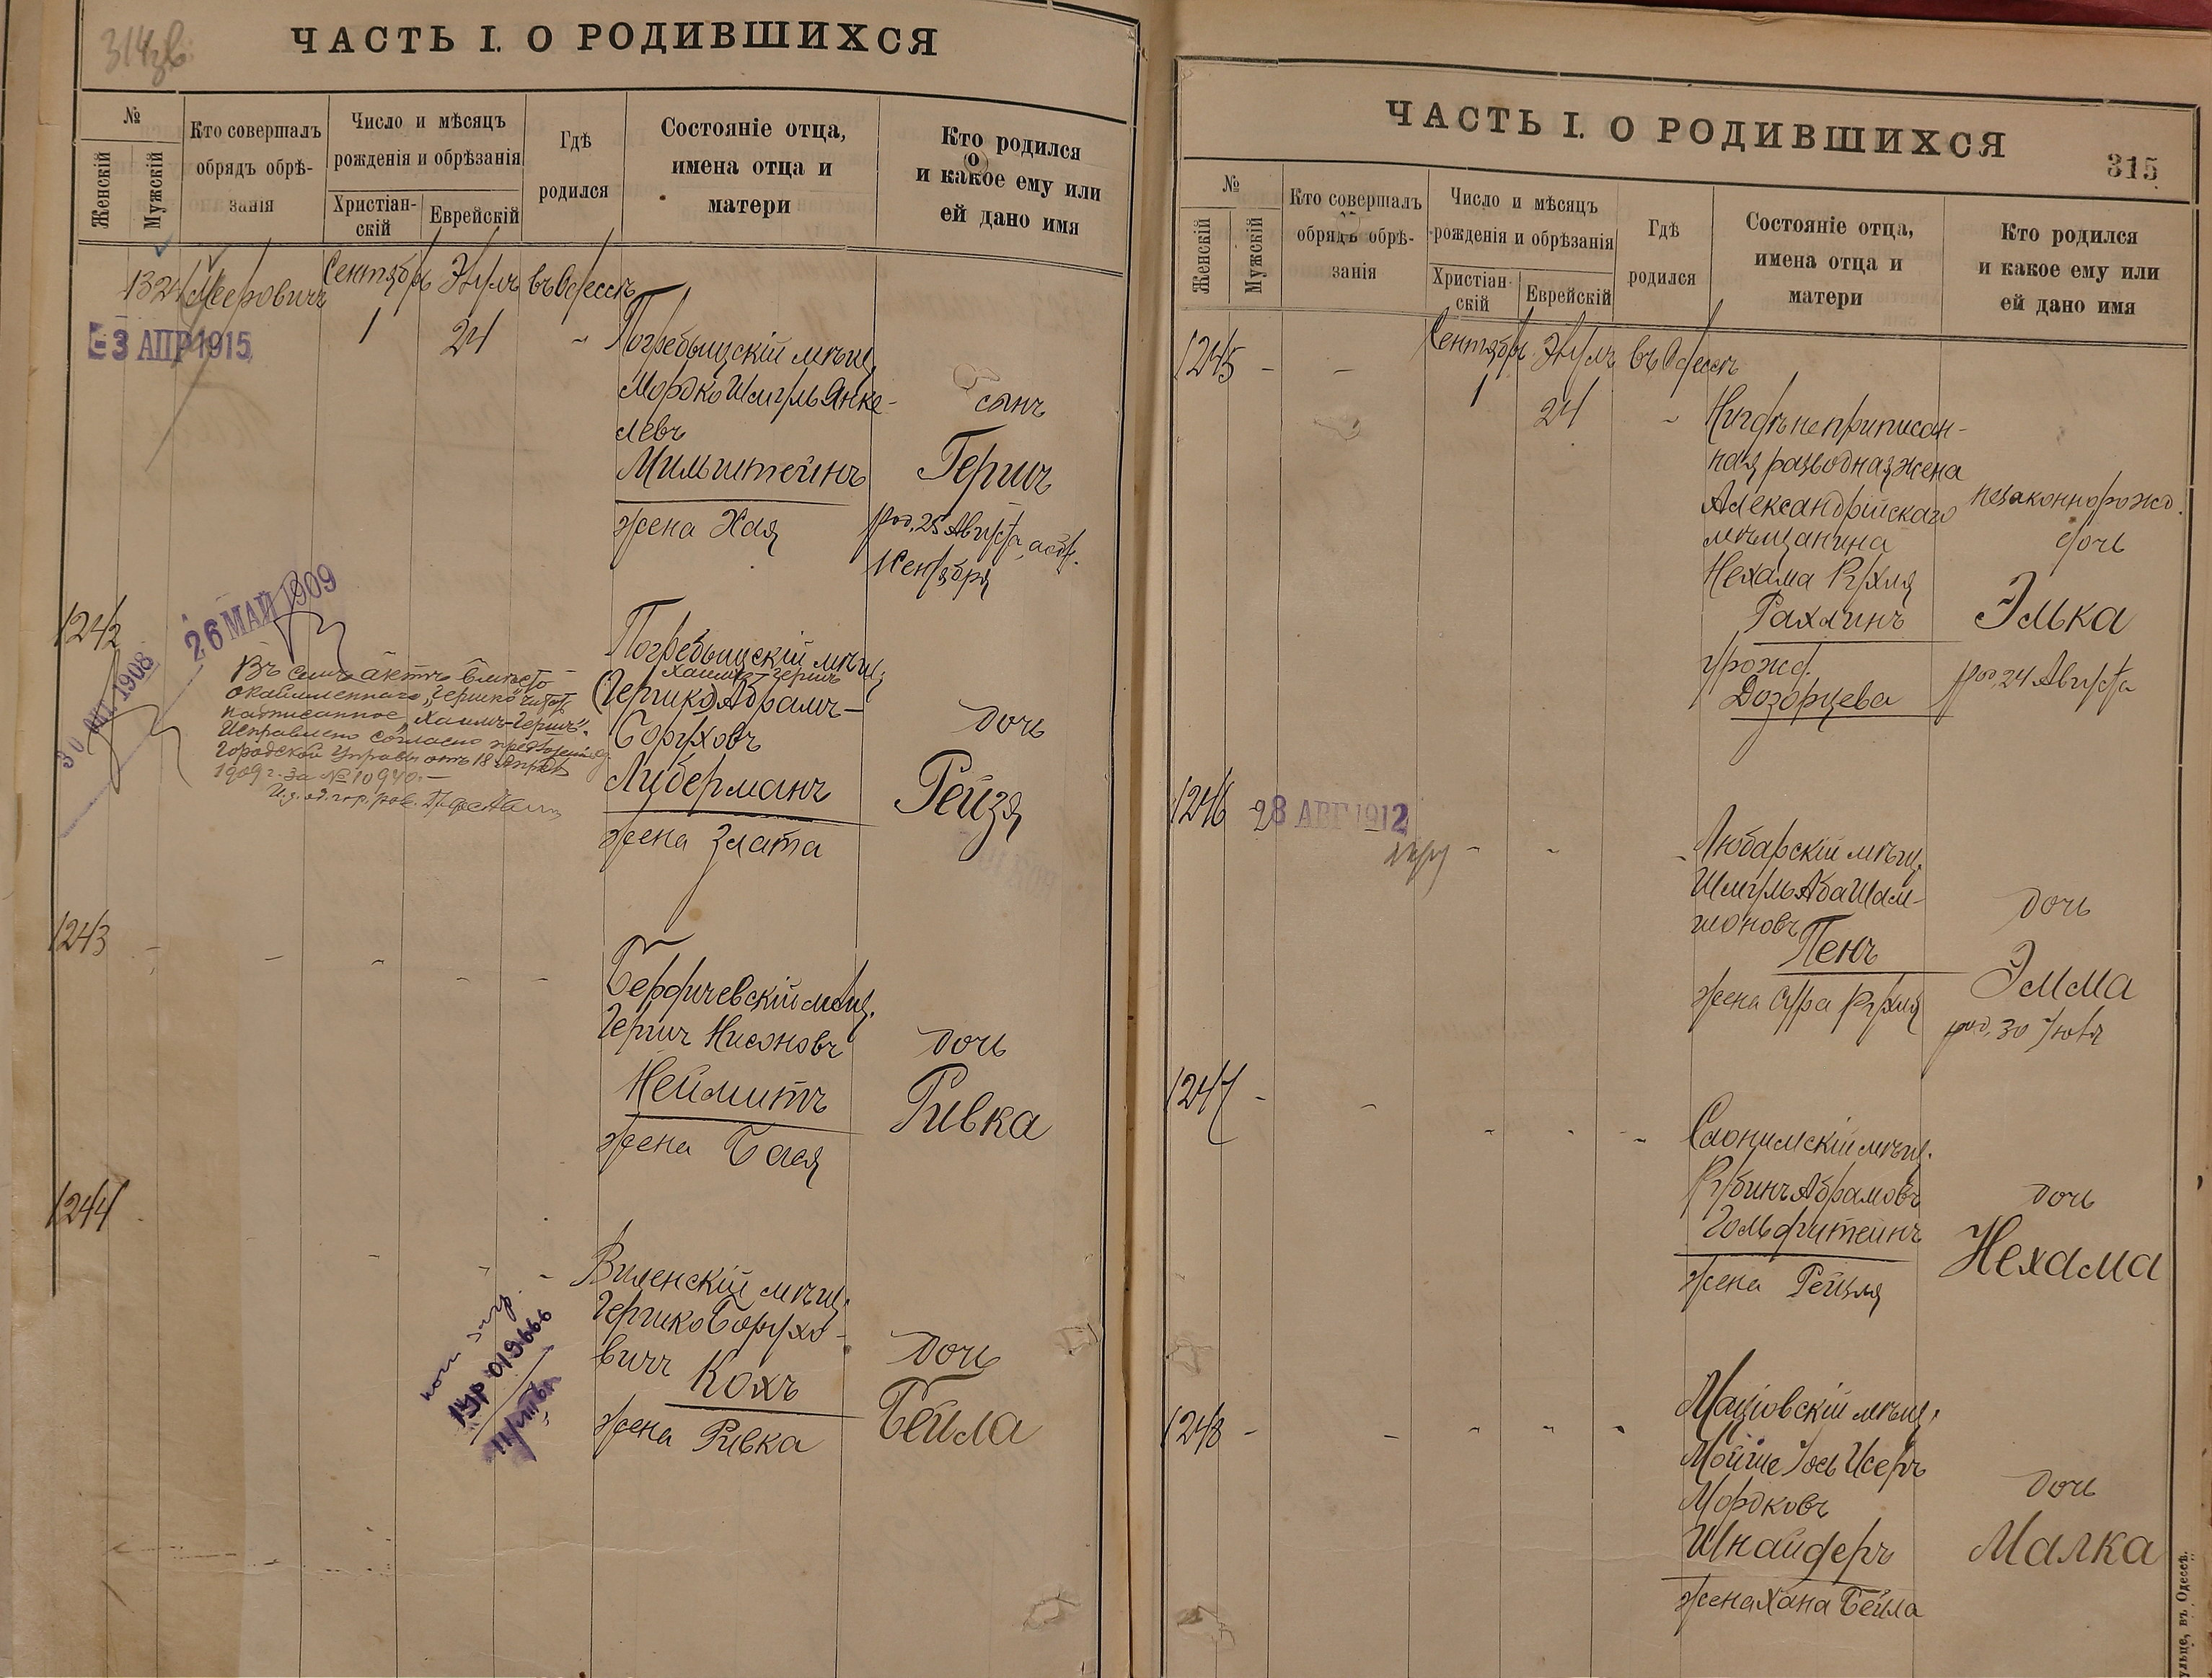 314об.
ЧАСТЬ I. О РОДИВШИХСЯ
№
Женскій
Мужскій
Кто совершалъ
обрядъ обрѣ-
занія
Число и мѣсяцъ
рожденія и обрѣзанія
Христіан-
скій
Еврейскій
Гдѣ
родился
Состояніе отца,
имена отца и
матери
Кто родился
и какое ему или
ей дано имя
1324 Меровичъ Сентябрь Элулъ въ Одессѣ
3 АПР 1915
1 24 -
Погребыщскій мѣщ.
Мордко Шмуль Янке-
левъ
Мильштейнъ
жена Хая
сынъ
Гершъ
род. 25 Августа, обр.
1 Сентября
1242
26 МАЙ 1909
30 1908
Въ семъ актѣ вмѣсто
окаймленнаго „Гершко" читать
надписанное „Хаимъ-Гершъ".
Исправлено согласно предложенію
Городской Управы отъ 18 Апрѣля
1909 г. за № 10940.-
Погребыщскій мѣщ.
Хаимъ-Гершъ
(Гершко) Абрамъ-
Боруховъ
Либерманъ
жена Злата
дочь
Рейзя
1243 - - - - -
Бердичевскій мѣщ.
Гершъ Нисоновъ
Неймитъ
жена Бася
дочь
Ривка
1244
Виленскій мѣщ.
Гершко Борухо-
вичъ Кохъ
жена Ривка
дочь
Бейла
019666
ЧАСТЬ I. О РОДИВШИХСЯ
315
№
Женскій
Мужскій
Кто совершалъ
обрядъ обрѣ-
занія
Число и мѣсяцъ
рожденія и обрѣзанія
Христіан-
скій
Еврейскій
Гдѣ
родился
Состояніе отца,
имена отца и
матери
Кто родился
и какое ему или
ей дано имя
1245 - - Сентябрь Элулъ въ Одессѣ
1 24 -
Нигдѣ неприписан-
ная разводная жена
Александрійскаго
мѣщанина
Нехама Рухля
Рахлинъ
урожд.
Дозорцева
незаконнорожд.
дочь
Элька
род. 24 Августа
1246
28 АВГ 1912
Любарскій мѣщ.
Шмуль Аба Шам-
шоновъ
Пенъ
жена Сура Рухля
дочь
Эмма
род. 30 Іюля
1247 - - - - -
Слонимскій мѣщ.
Рубинъ Абрамовъ
Гольдштейнъ
жена Рейзля
дочь
Нехама
1248 - - - - -
Маціовскій мѣщ.
Мойше Іось Исеръ
Мордковъ
Шнайдеръ
жена Хана Бейла
дочь
Малка
въ Одессѣ.